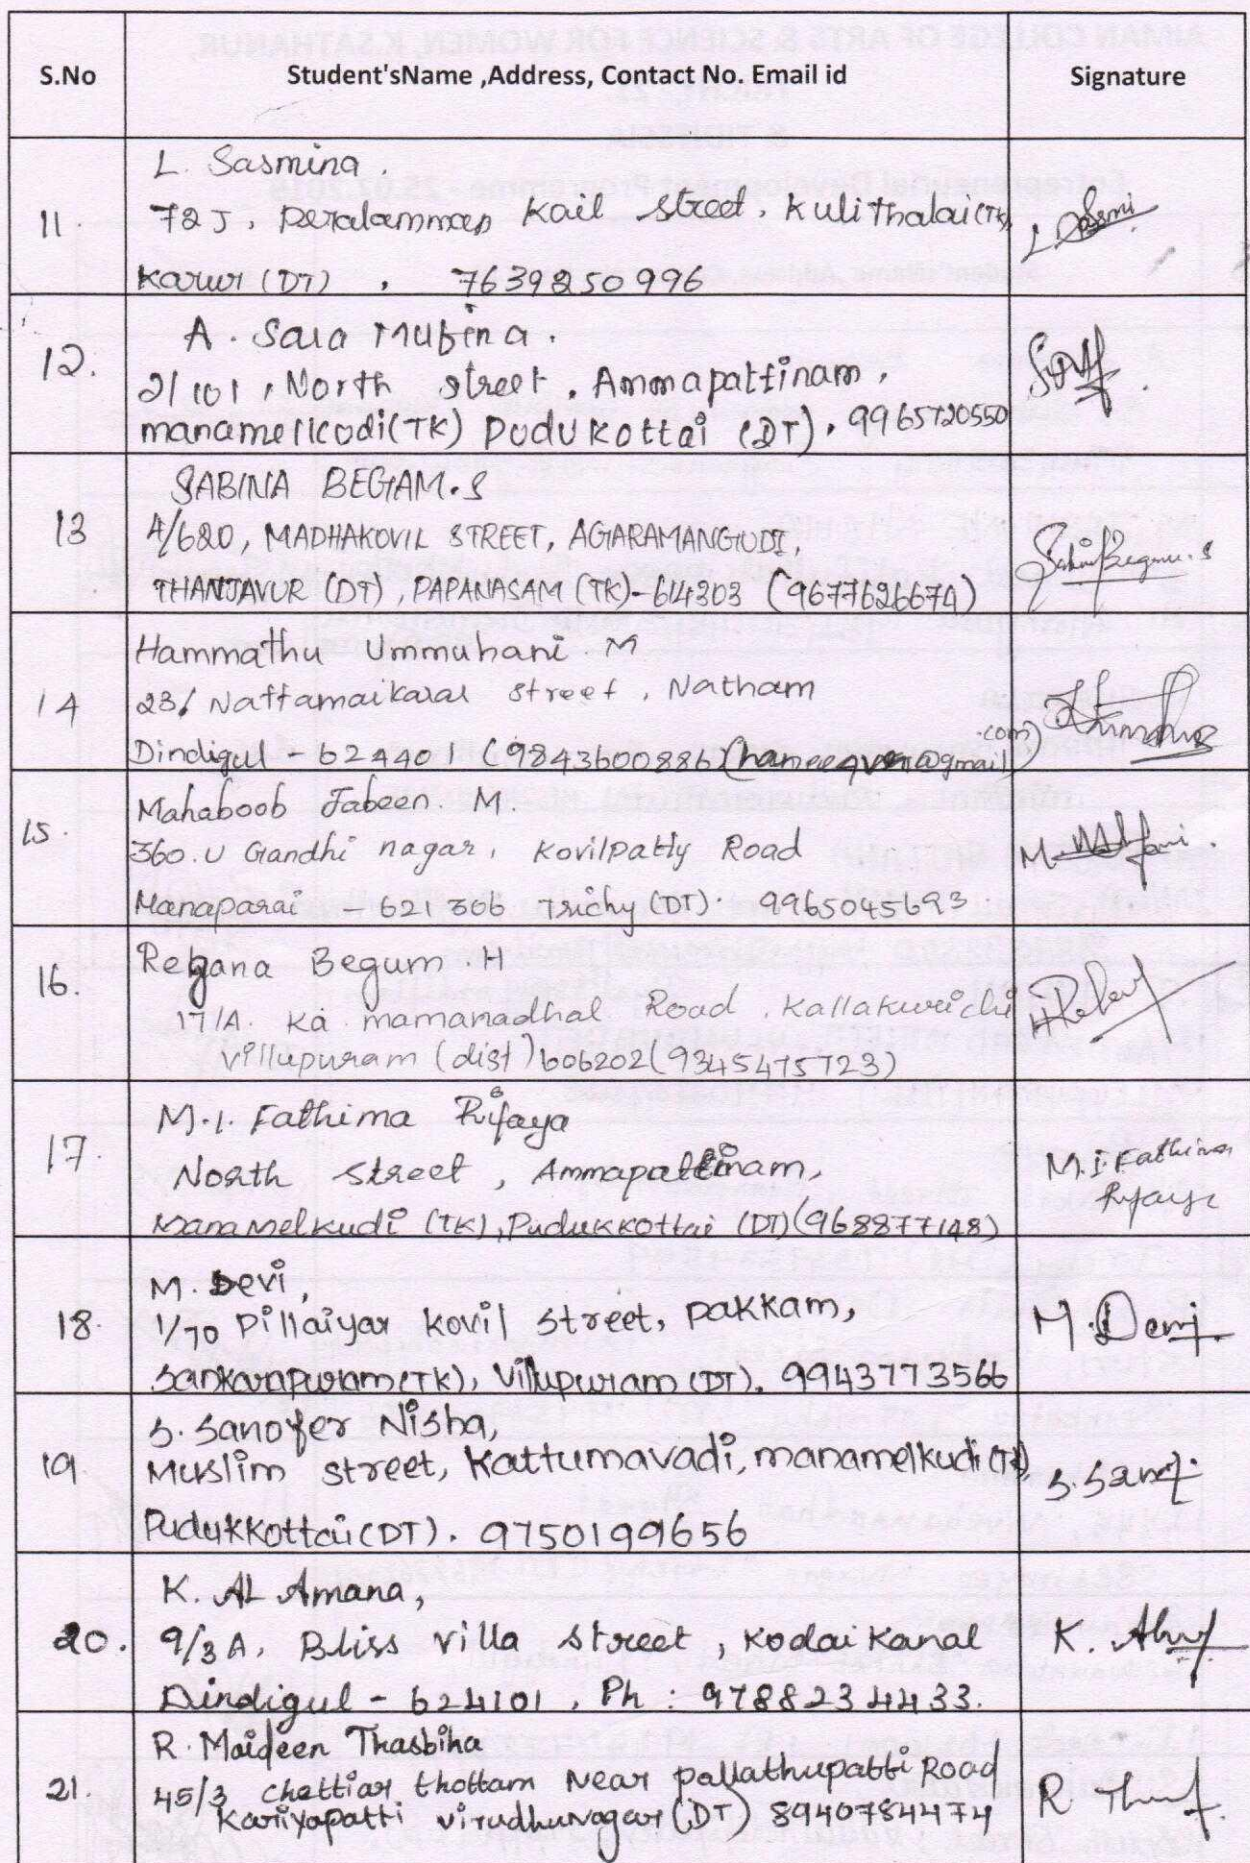 S.No Student'sName ,Address, Contact No. Email id Signature
11. L. Sasmina.
72J, Peralamman Kail street, Kulithalai(TK),
Karur (DT) , 7639250996
12. A. Sara Mubina.
2/101, North street, Ammapattinam,
manamelkodi(TK) Pudukottai (DT). 9965720550
13 SABINA BEGAM.S
4/620, MADHAKOVIL STREET, AGARAMANGUDI,
THANJAVUR (DT), PAPANASAM (TK)-614303 (9677626674)
14 Hammathu Ummuhani. M
23/ Nattamaikarar street, Natham
Dindigul - 624401 (9843600886) @gmail.com)
15. Mahaboob Jabeen. M.
360.U Gandhi nagar, Kovilpatty Road
Manaparai - 621306 Trichy (DT). 9965045693.
16. Rehana Begum. H
17/A. Ka mamanadhal Road, Kallakurichi
Villupuram (dist) 606202 (9345475723)
17. M.I. Fathima Rifaya M.I. Fathima
North street, Ammapattinam, Rifaya
Manamelkudi (TK), Pudukkottai (DT) (968877148)
18. M. Devi, M. Devi
1/70 Pillaiyar kovil street, pakkam,
Sankarapuram(TK), Villupuram (DT). 9943773566
19 S. Sanofer Nisha,
Muslim street, Kattumavadi, manamelkudi(TK),
Pudukkottai(DT). 9750199656
20. K. AL Amana,
9/3A, Bliss villa street, Kodaikanal
Dindigul - 624101, Ph : 9788234433.
21. R. Maideen Thasbiha
45/3 Chettiar thottam Near pallathupatti Road
Kariyapatti virudhunagar (DT) 8940784474